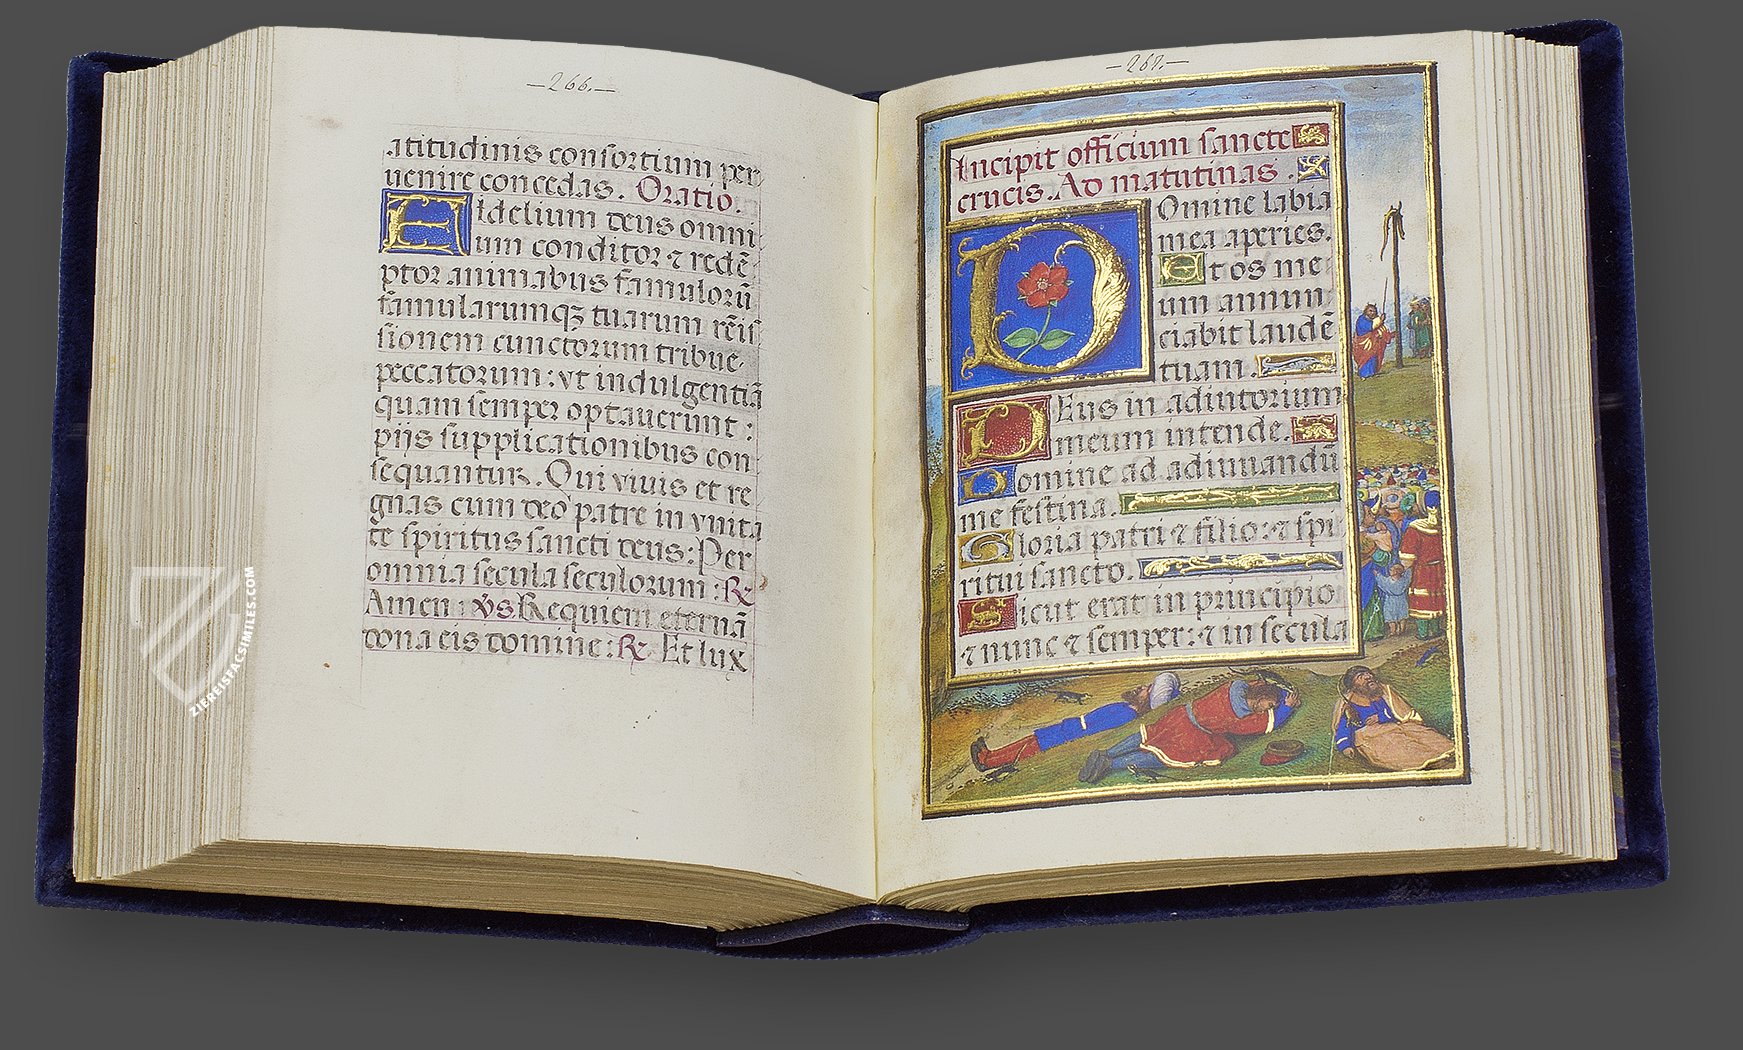 —266.—
atitudinis consortium per
uenire concedas. Oratio.
FIdelium deus omni
um conditor ⁊ redē
ptor animabus famulorū
famularumqꝫ tuarum rēis
sionem cunctorum tribue
peccatorum: vt indulgentiā
quam semper optauerunt:
piis supplicationibus con
sequantur. Qui viuis et re
gnas cum deo patre in vnita
te spiritus sancti deus: Per
omnia secula seculorum: ℟
Amen: v̄s Requiem eternā
dona eis domine: ℟. Et lux
—267.—
Incipit officium sancte
crucis. Ad matutinas.
DOmine labia
mea aperies.
Et os me
um annun
ciabit laudē
tuam.
DEus in adiutorium
meum intende.
Domine ad adiuuandū
me festina.
Gloria patri ⁊ filio: ⁊ spi
ritui sancto.
Sicut erat in principio
⁊ nunc ⁊ semper: ⁊ in secula
ZIEREISFACSIMILES.COM